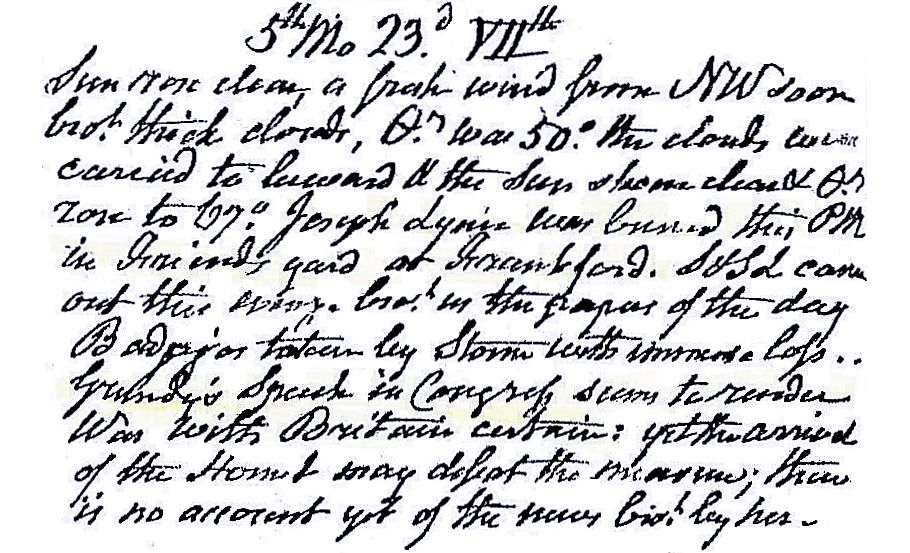 5th Mo 23.d VIIth
Sun rose clear, a fresh wind from NW soon
brot. thick clouds, was 50.° the clouds were
carried to leeward & the Sun shone clear &
rose to 67.° Joseph was buried this PM
in Friends yard at Frankford. came
out this eveng. brot. in the papers of the day
Badajos taken by Storm with immense loss..
Grundy's Speech in Congress seems to render
War with Britain certain: yet the arrival
of the Hornet may defeat the measure; there
is no account yet of the news brot. by her.